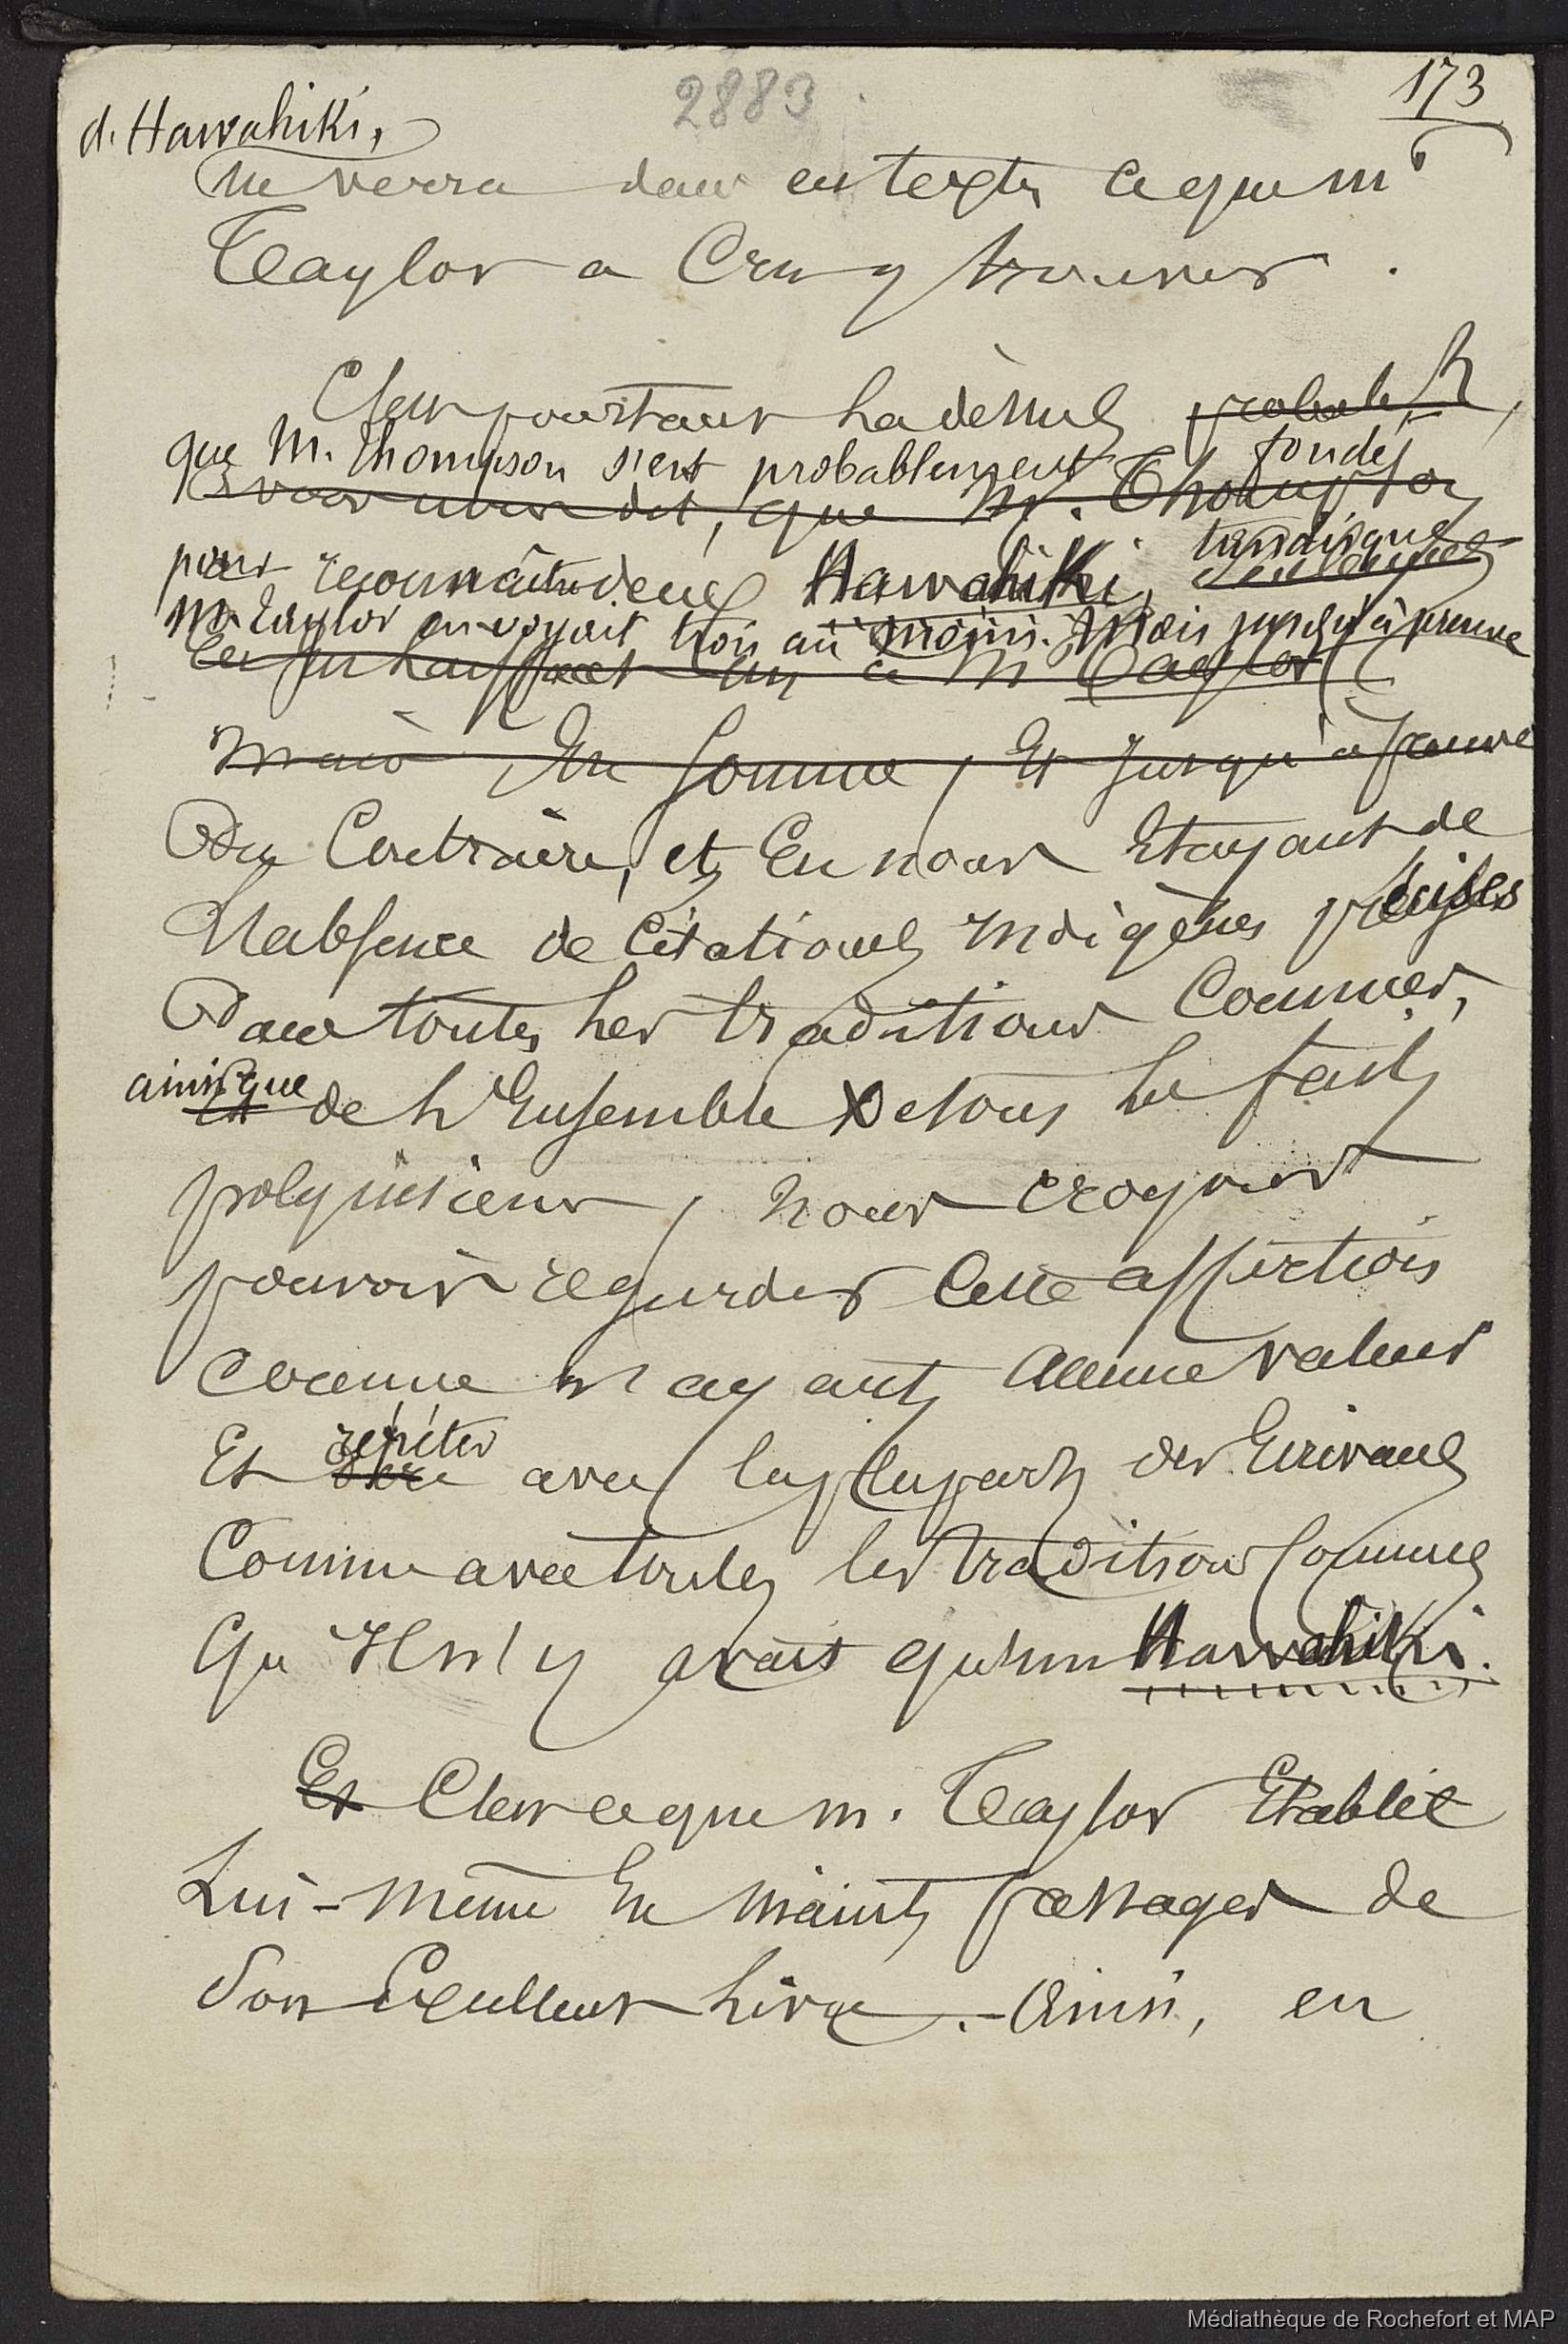 2883
173
d. Hawahiki,
ne verra dans ces textes ce que Mr
Taylor a cru y trouver.
C'est pourtant là dessus probablt,
que M. Thompson s'est probablement fondé
dit, que Mr. Thompson
pour reconnaître deux Hawahiki, tandis que
M. Taylor en voyait trois au moins. Mais jusqu'à preuve
à M Taylor
Mais En somme, Et jusqu'à preuve
Du Contraire, et En nous Etayant de
l'absence de Citations indigènes précises
Dans toutes les traditions Connues,
ainsi que
Et de l'Ensemble De tous les faits
polynésiens, nous croyons
pouvoir regarder Cette assertion
comme n'ayant aucune valeur
répéter
Et dire avec la plupart des Ecrivains
Comme avec toutes les traditions Connues
Qu'Il n'y avait qu'un Hawahiki.
Et C'est ce que M. Taylor Etablit
Lui-même En maints passages de
Son Excellent Livre. - Ainsi, en
Médiathèque de Rochefort et MAP